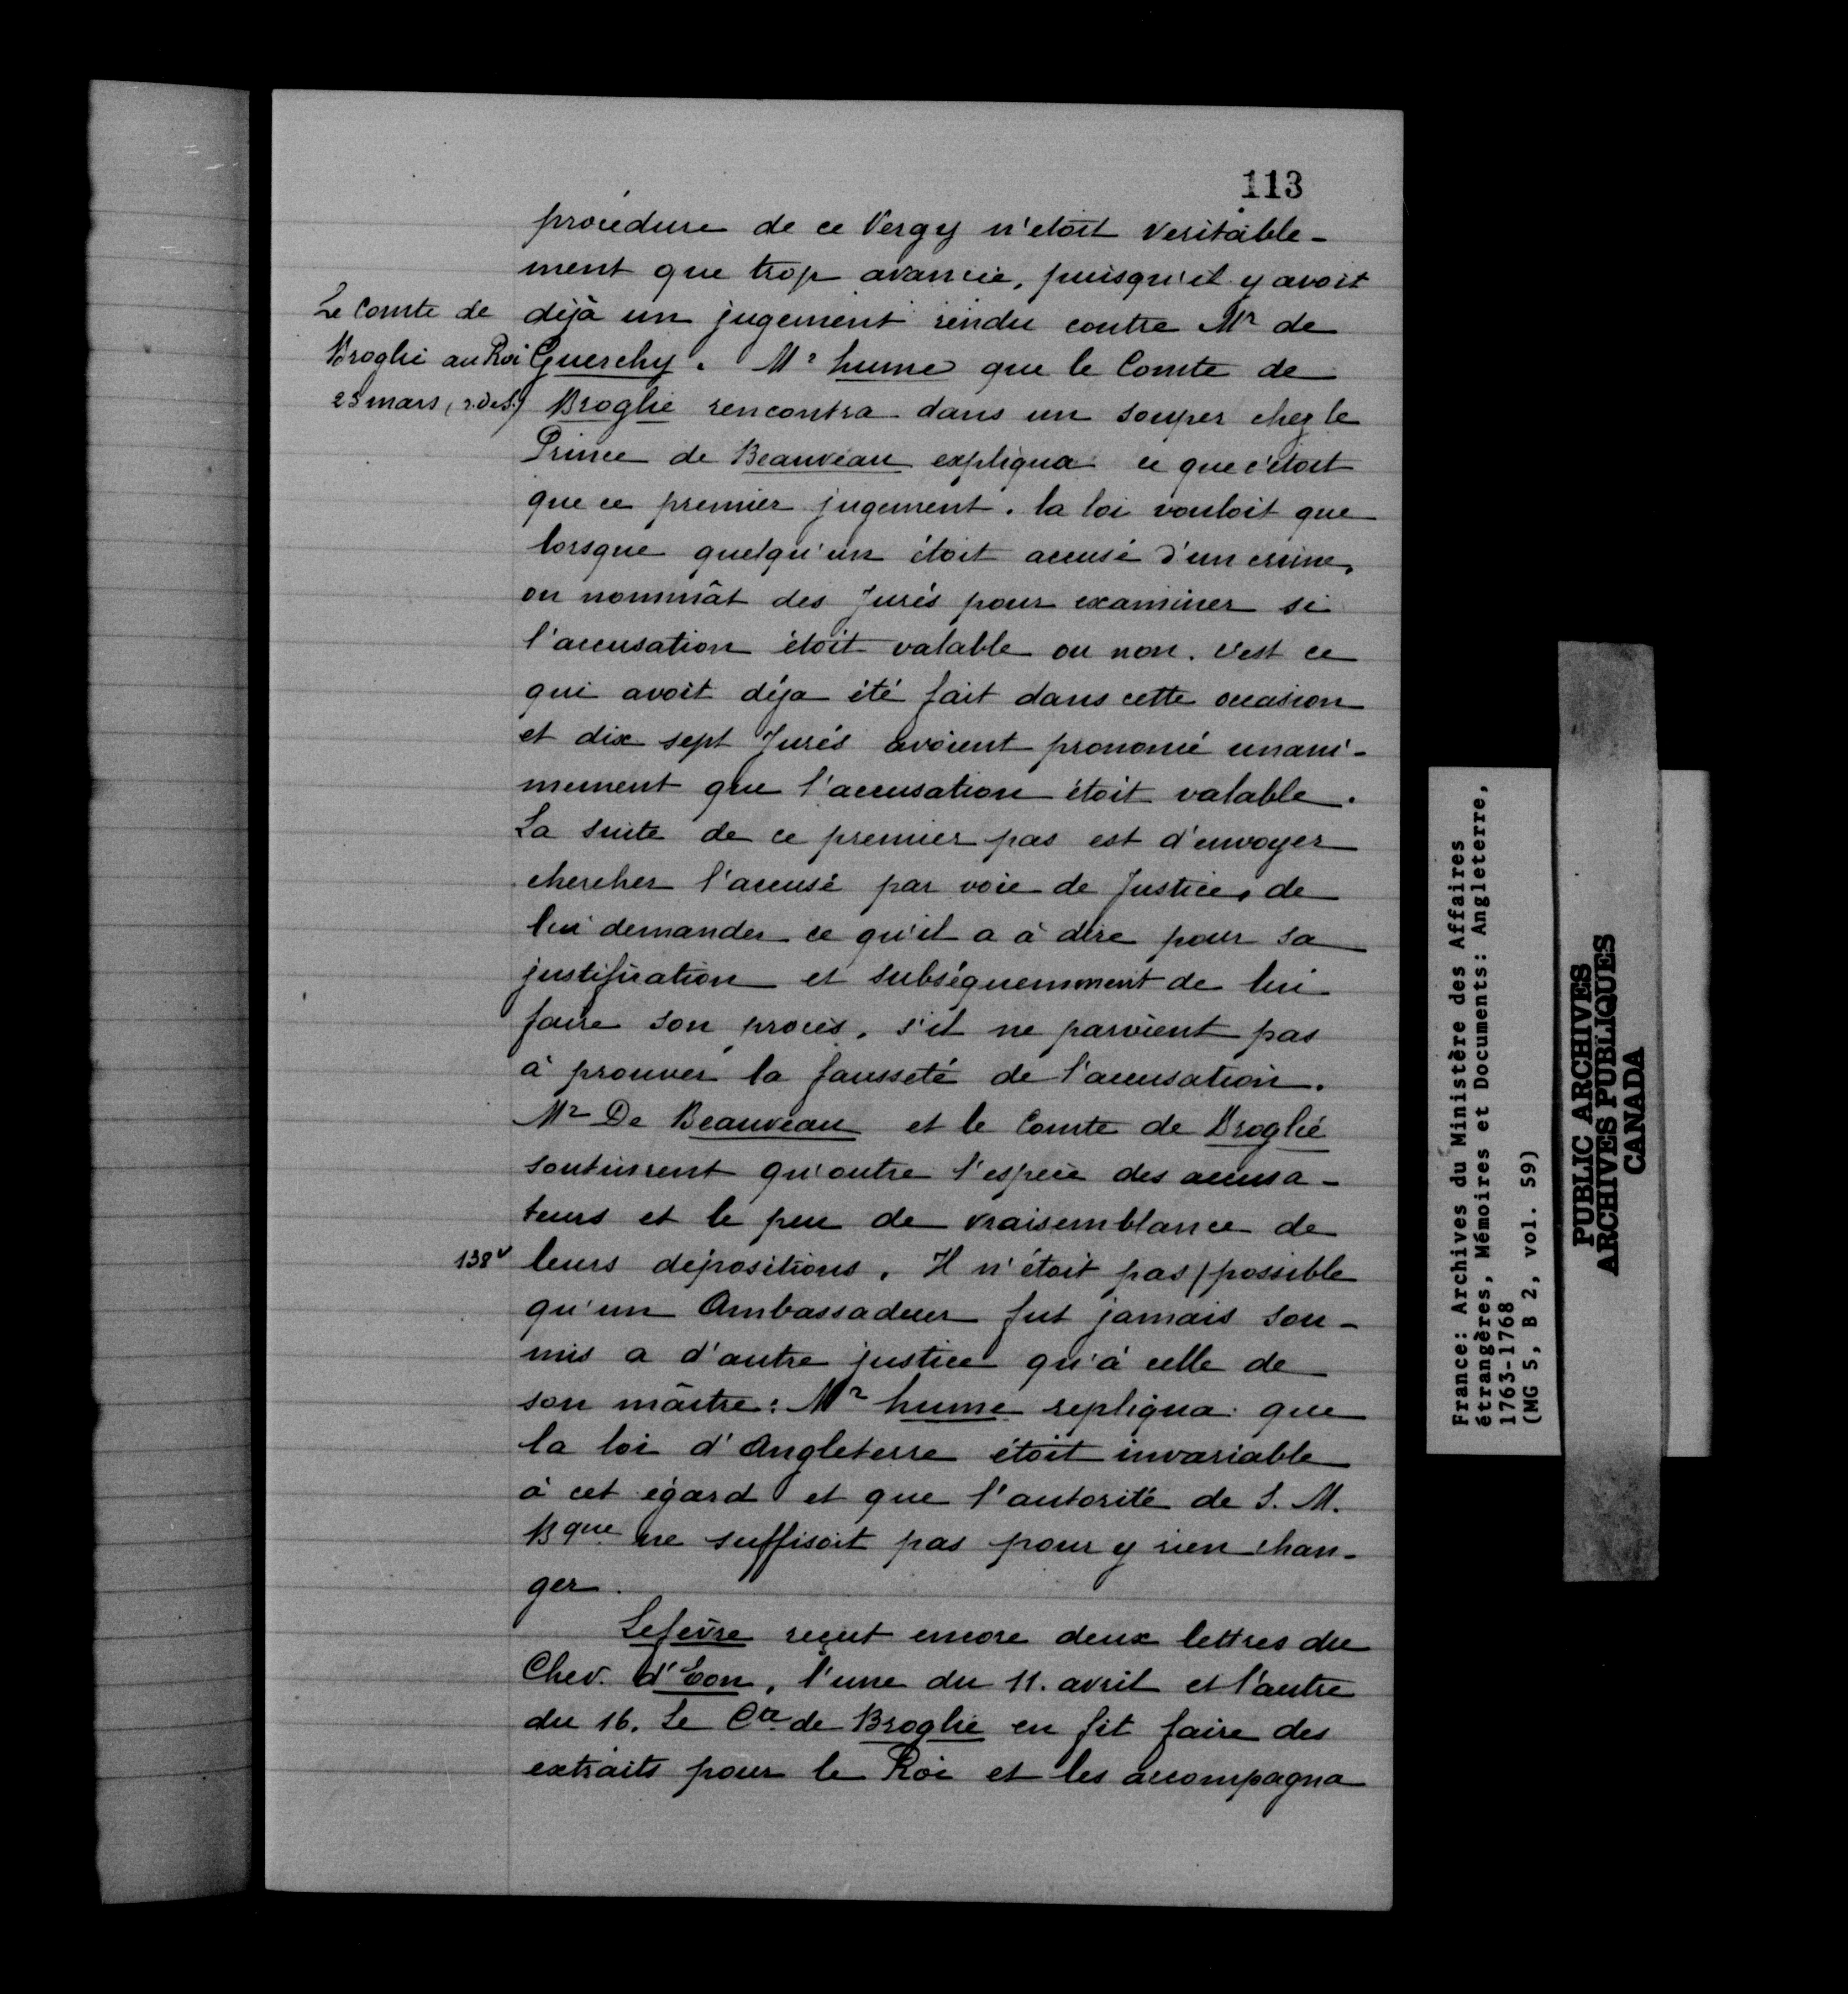 113
procédure de ce Vergy n'etoit veritable-
ment que trop avancée, puisqu'il y avoit
Le Comte de
Broglie au Roi
déjà un jugement rendu contre Mr de
Guerchy. Mr hume que le Comte de
Broglie rencontra dans un souper chez le
23 mars,
Prince de Beauveau expliqua ce que c'étoit
que ce premier jugement. la loi vouloit que
lorsque quelqu'un étoit accusé d'un crime,
on nommât des Jurés pour examiner si
l'accusation étoit valable ou non. c'est ce
qui avoit déja été fait dans cette occasion
et dix sept Jurés avoient prononcé unani-
mement que l'accusation étoit valable.
La suite de ce premier pas est d'envoyer
chercher l'accusé par voie de Justice, de
lui demander ce qu'il a à dire pour sa
justification et subséquemment de lui
faire son procès, s'il ne parvient pas
à prouver la fausseté de l'accusation.
Mr De Beauveau et le Comte de Broglie
soutinrent qu'outre l'espèce des accusa-
teurs et le peu de vraisemblance de
138v
leurs dépositions, Il n'étoit pas/possible
qu'un Ambassadeur fut jamais sou-
mis a d'autre justice qu'à celle de
son maître: Mr hume repliqua que
la loi d'Angleterre étoit invariable
à cet égard et que l'autorité de S. M.
Bque ne suffisoit pas pour y rien chan-
ger.
Lefèvre reçut encore deux lettres du
Chev. d'Eon, l'une du 11. avril et l'autre
du 16. Le Cte de Broglie en fit faire des
extraits pour le Roi et les accompagna
France: Archives du Ministère des Affaires
étrangères, Mémoires et Documents: Angleterre,
1763-1768
(MG 5, B 2, vol. 59)
PUBLIC ARCHIVES
ARCHIVES PUBLIQUES
CANADA